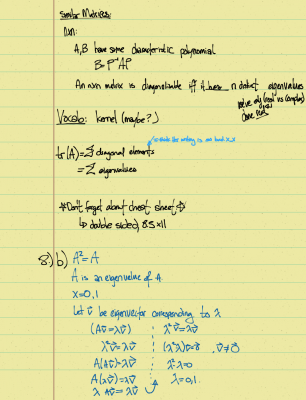 Similar Matrices:
A,B have same characteristic polynomial
B=P⁻¹AP
An nxn matrix is diagonalizable iff it has n distinct eigenvalues
Vocab: kernel (maybe?)
tr(A)=Σ diagonal elements
=Σ eigenvalues
*Don't forget about cheat sheet
↳ double sided, 8.5x11
8.) b) A²=A
λ is an eigenvalue of A
λ=0,1
Let v⃗ be eigenvector corresponding to λ
(Av⃗=λv⃗) λ²v⃗=λv⃗
λ²v⃗=λv⃗ (λ²-λ)v⃗=0⃗, v⃗≠0⃗
A(Av⃗)=λv⃗ λ²-λ=0
A(λv⃗)=λv⃗ λ=0,1.
λ Av⃗=λv⃗